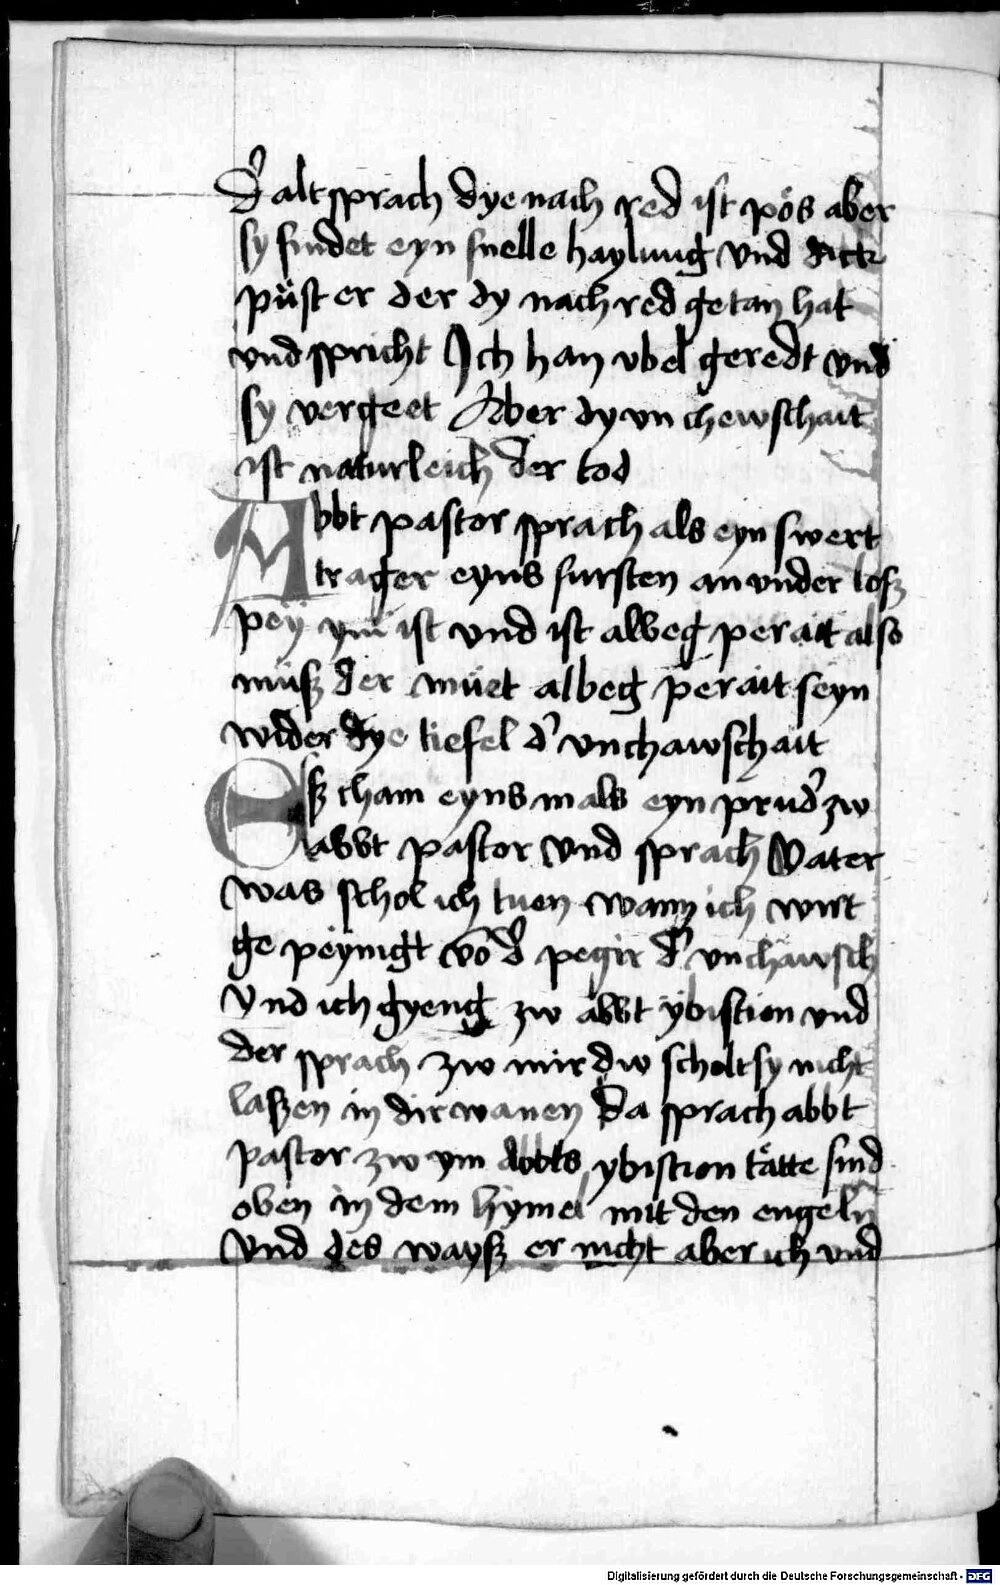 d' alt sprach dye nach red ist pös aber
sy findet eyn snelle haylung vnd dick
püst er der dy nach red getan hat
vnd spricht Ich han vbel geredt vnd
sy vergeet Aber dy vnchewschait
ist naturleich der tod
Abbt pastor sprach als eyn swert
trager eyns fursten an vnder losz
pey ym ist vnd ist alweg perait also
müsz der müet albeg perait seyn
wider dye tiefel d' vnchawschait
Esz cham eyns mals eyn prud' zw
abbt pastor vnd sprach Vater
was schol ich tuen wann ich wirt
ge peynigt vō d' pegir d' vnchawsch
Vnd ich gyeng zw abbt ybistion vnd
der sprach zw mir dw scholt sy nicht
laszen in dir wanen Da sprach abbt
pastor zw ym Abbts ybistion tätte sind
oben in dem hymel mit den engeln
Vnd des waysz er nicht aber ich vnd
Digitalisierung gefördert durch die Deutsche Forschungsgemeinschaft - DFG